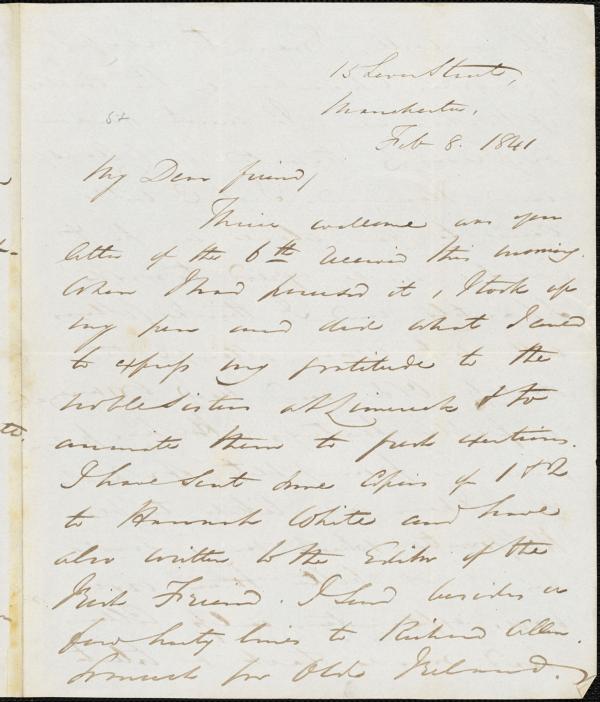 15 Lever Street,
Manchester,
Feb 8. 1841
My Dear friend,
Thrice welcome was your
letter of the 6th received this morning.
When I had perused it, I took up
my pen and did what I could
to express my gratitude to the
noble Sisters at Limerick & to
animate them to fresh exertions.
I have sent some Copies of 1 & 2
to Hannah White and have
also written to the Editor of the
Irish Friend. I send besides a
few hasty lines to Richard Allen.
So much for Olde Ireland.